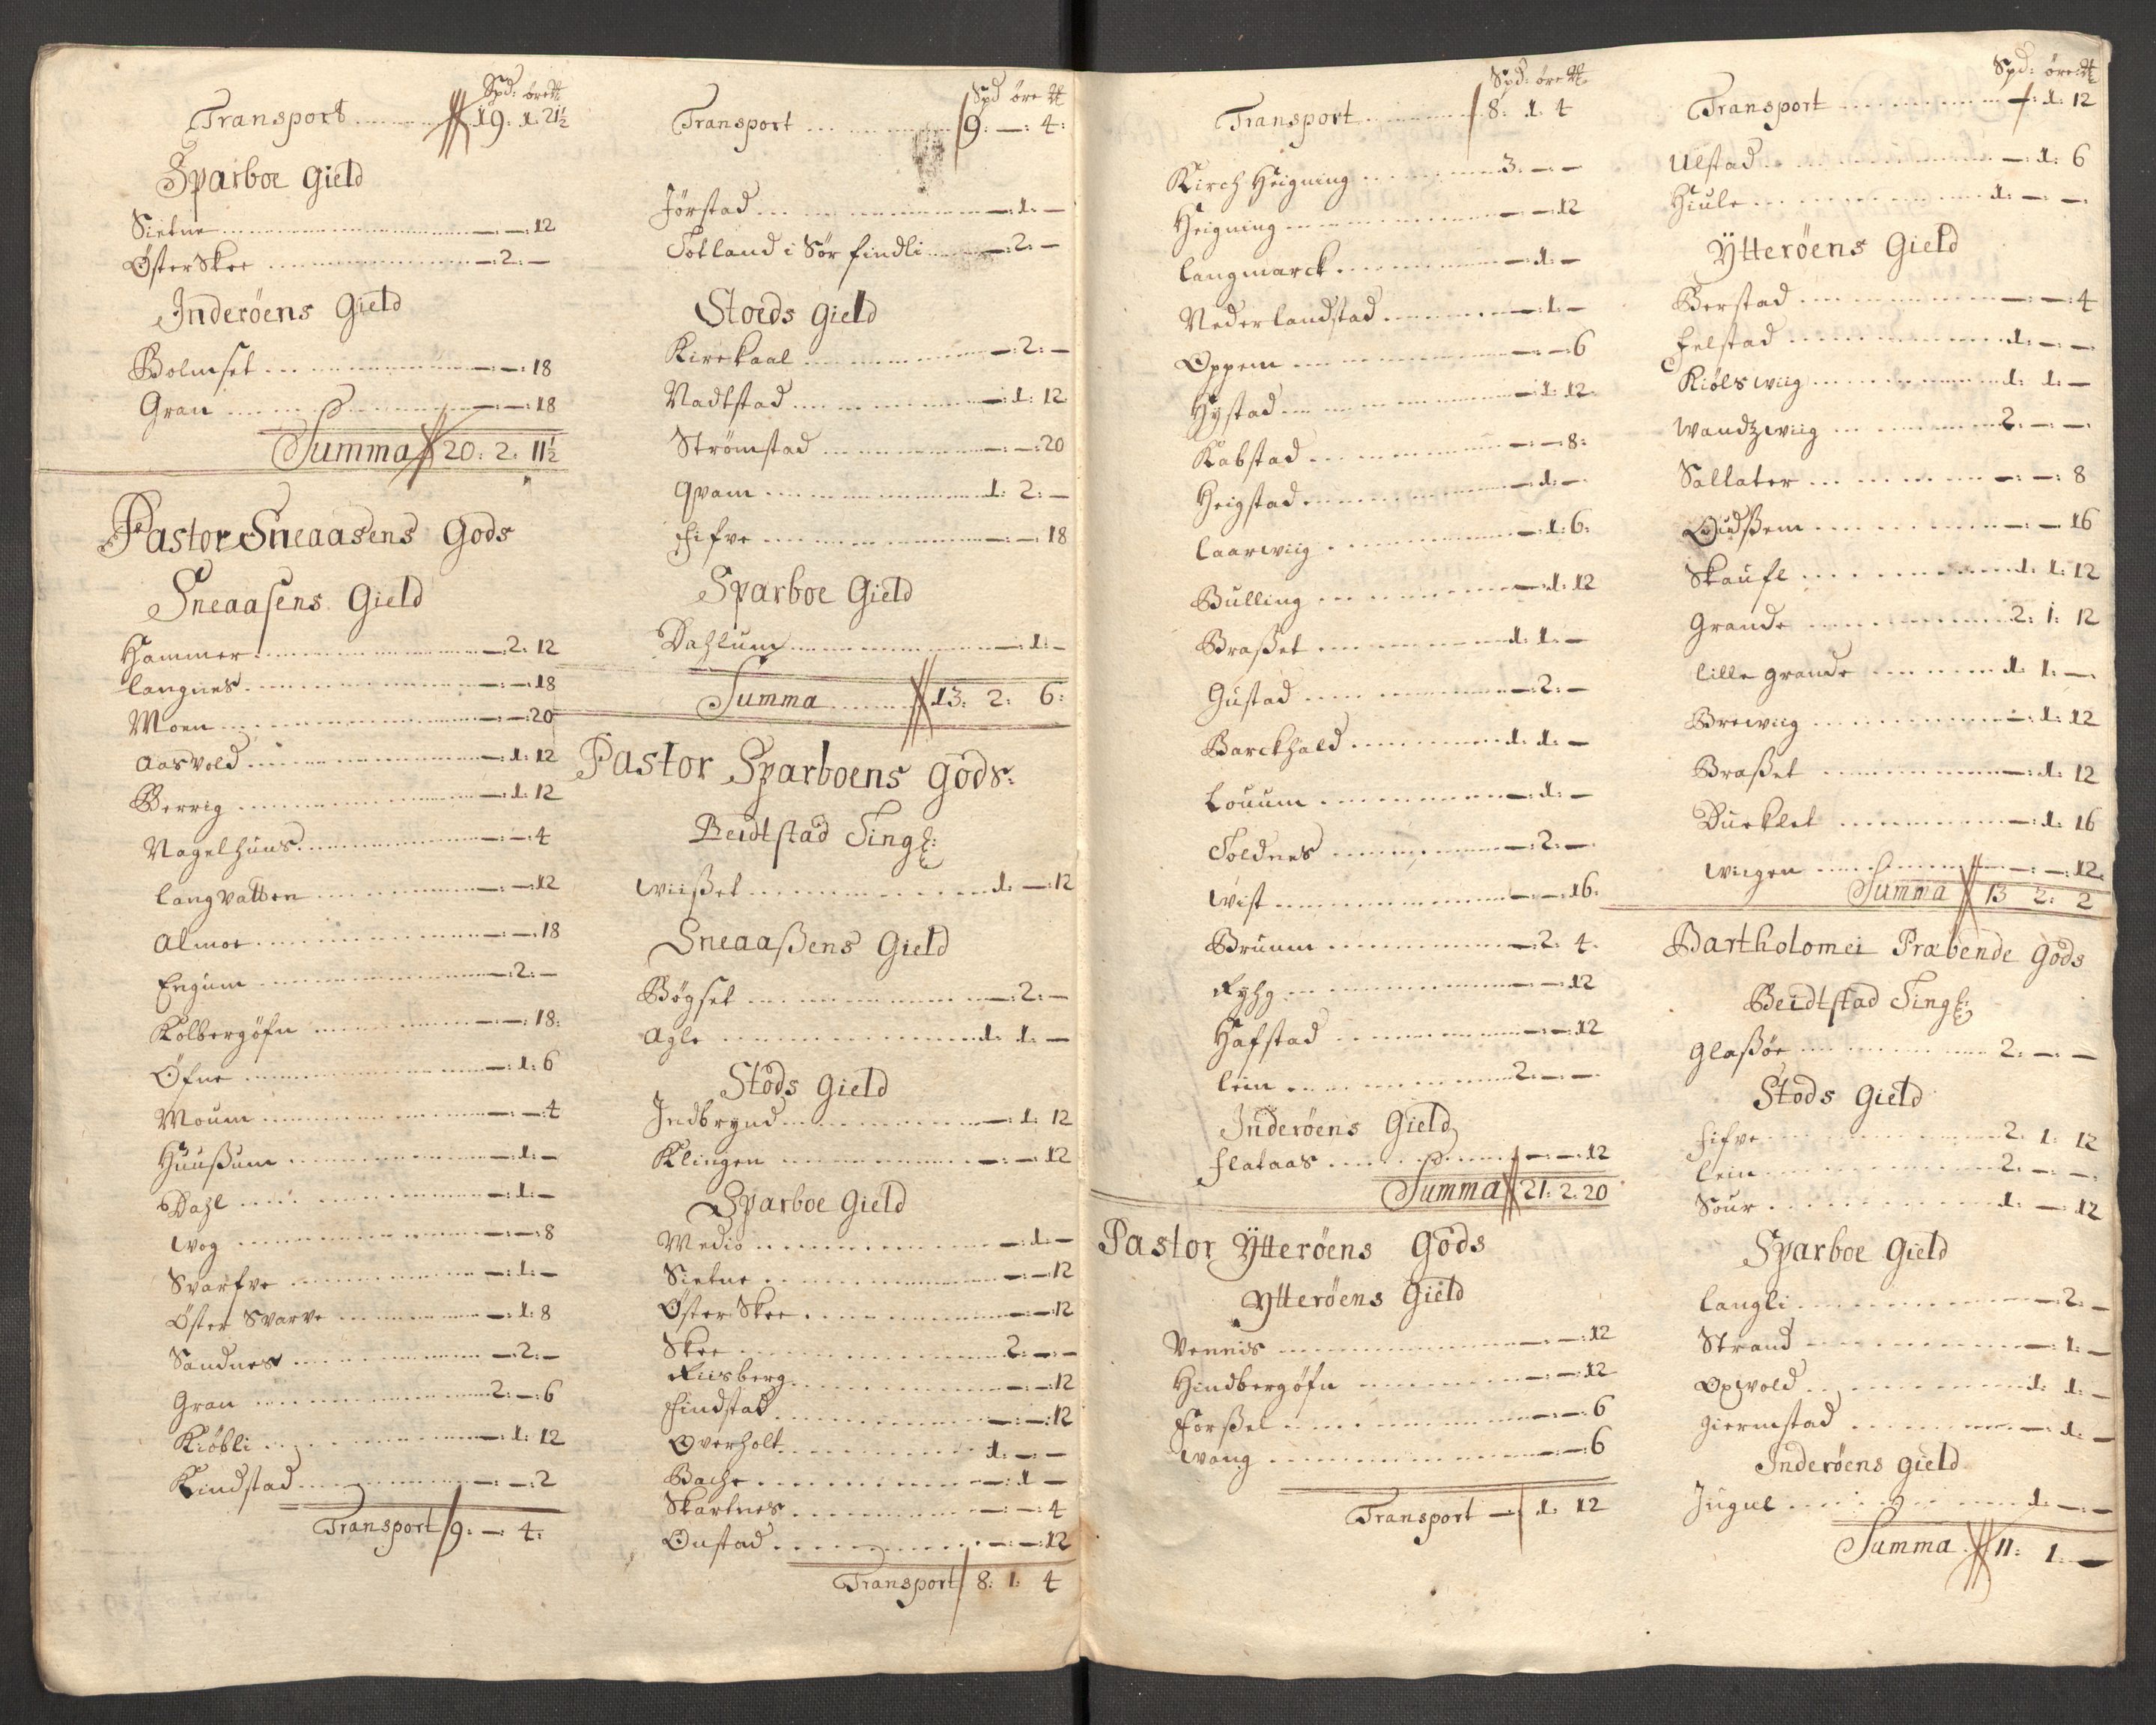 Spd: öre ℔
Transport ........ 19. 1. 21½
Sparboe Gield
Sietne ........ —. —. 12
Østerskee ........ —. 2. —
Inderöens Gield
Bolmset ........ —. —. 18
Gran ........ —. —. 18
Summa 20. 2. 11½
Pastor Sneaasens Gods
Sneaasens Gield
Hammer ........ —. 2. 12
Langnes ........ —. —. 18
Moen ........ —. —. 20
Aasvold ........ —. 1. 12
Berrig ........ —. 1. 12
Nagelhuus ........ —. —. 4
Langvatten ........ —. —. 12
Almoe ........ —. —. 18
Engium ........ —. 2. —
Kolbergöfn ........ —. —. 18:
Öfne ........ —. 1. 6
Moum ........ —. —. 4
Huußum ........ —. 1. —
Dahl ........ —. 1. —
Wog ........ —. —. 8
Svarfve ........ —. 1. —
Öster Svarve ........ —. 1. 8
Sandnes ........ —. 2. —
Gran ........ 2. —. 6
Kiöbli ........ —. 1. 12
Kindstad ........ —. —. 2
Transport 9. —. 4:
Spd öre ℔
Transport ........ 9. —. 4:
Jörstad ........ —. 1. —
Totland i Sör findli ........ —. 2. —
Stoeds Gield
Kirekaal ........ —. 2. —
Nadtstad ........ —. 1. 12
Strömstad ........ —. —. 20
Qvam ........ 1. 2. —
Fifve ........ —. —. 18
Sparboe Gield
Dahlum ........ —. 1. —
Summa ........ 13. 2. 6:
Pastor Sparboens Gods:
Beidtstad Tingl:
Wiißet ........ 1. —. 12
Sneaaßens Gield
Bögset ........ —. 2. —
Agle ........ 1. 1. —
Stöds Gield
Indbrynd ........ —. 1. 12
Klingen ........ —. —. 12
Sparboe Gield
Medio ........ —. 1. —
Sietne ........ —. —. 12
Østerskee ........ —. —. 12
Skee ........ 2. —. —
Riisberg ........ —. —. 12
Findstad ........ —. —. 12
Overholt ........ 1. —. —
Bache ........ —. 1. —
Skartnes ........ —. —. 4
Onstad ........ —. —. 12
Transport 8. 1. 4
Spd: öre ℔
Transport ........ 8. 1. 4
Kirch Heigning ........ 3. —. —
Heigning ........ —. —. 12
Langmarck ........ —. 1. —
Nederlandstad ........ —. 1. —
Oppem ........ —. —. 6
Hystad ........ —. 1. 12.
Kabstad ........ —. —. 8:
Heigstad ........ —. 1. —
Laarwiig ........ —. 1. 6:
Bulling ........ —. 1. 12
Braßet ........ 1. 1. —
Gustad ........ —. 2. —
Barckhald ........ 1. 1. —
Louum ........ —. 1. —
Toldnes ........ —. 2. —
Wist ........ —. —. 16.
Brumm ........ —. 2. 4.
Ryhg ........ —. —. 12
Hafstad ........ —. —. 12
Lein ........ 2. —. —
Inderöens Gield
Flataas ........ —. —. 12
Summa 21. 2. 20
Pastor Ytteröens Gods
Ytteröens Gield
Vennis ........ —. —. 12
Hindbergöfn ........ —. —. 12
Forßel ........ —. —. 6
Wang ........ —. —. 6
Transport —. 1. 12
Spd: öre ℔
Transport ........ —. 1. 12
Ulstad ........ —. 1. 6
Hiule ........ 1. —. —
Ytteröens Gield
Berstad ........ —. —. 4
Felstad ........ 1. —. —
Kiölswiig ........ 1. 1. —
Wandzwiig ........ 2. —. —
Sallater ........ —. —. 8
Oudßem ........ —. —. 16
Skaufl ........ 1. 1. 12
Grande ........ 2. 1. 12
Lille grande ........ 1. 1. —
Brewiig ........ —. 1. 12
Braßet ........ —. 1. 12
Dueklet ........ —. 1. 16
Wiigen ........ —. —. 12.
Summa 13 2. 2
Bartholomei Præbende Gods
Beidtstad Tingl:
Glaßöe ........ 2. —. —
Stods Gield
Fifve ........ 2. 1. 12
Lein ........ 2. —. —
Sour ........ 1. —. 12
Sparboe Gield
Langli ........ —. 2. —
Strand ........ —. 1. —
Opvold ........ 1. 1. —
Giermstad ........ —. 1. —
Inderöens Gield
Jugul ........ 1. —. —
Summa 11. 1. —